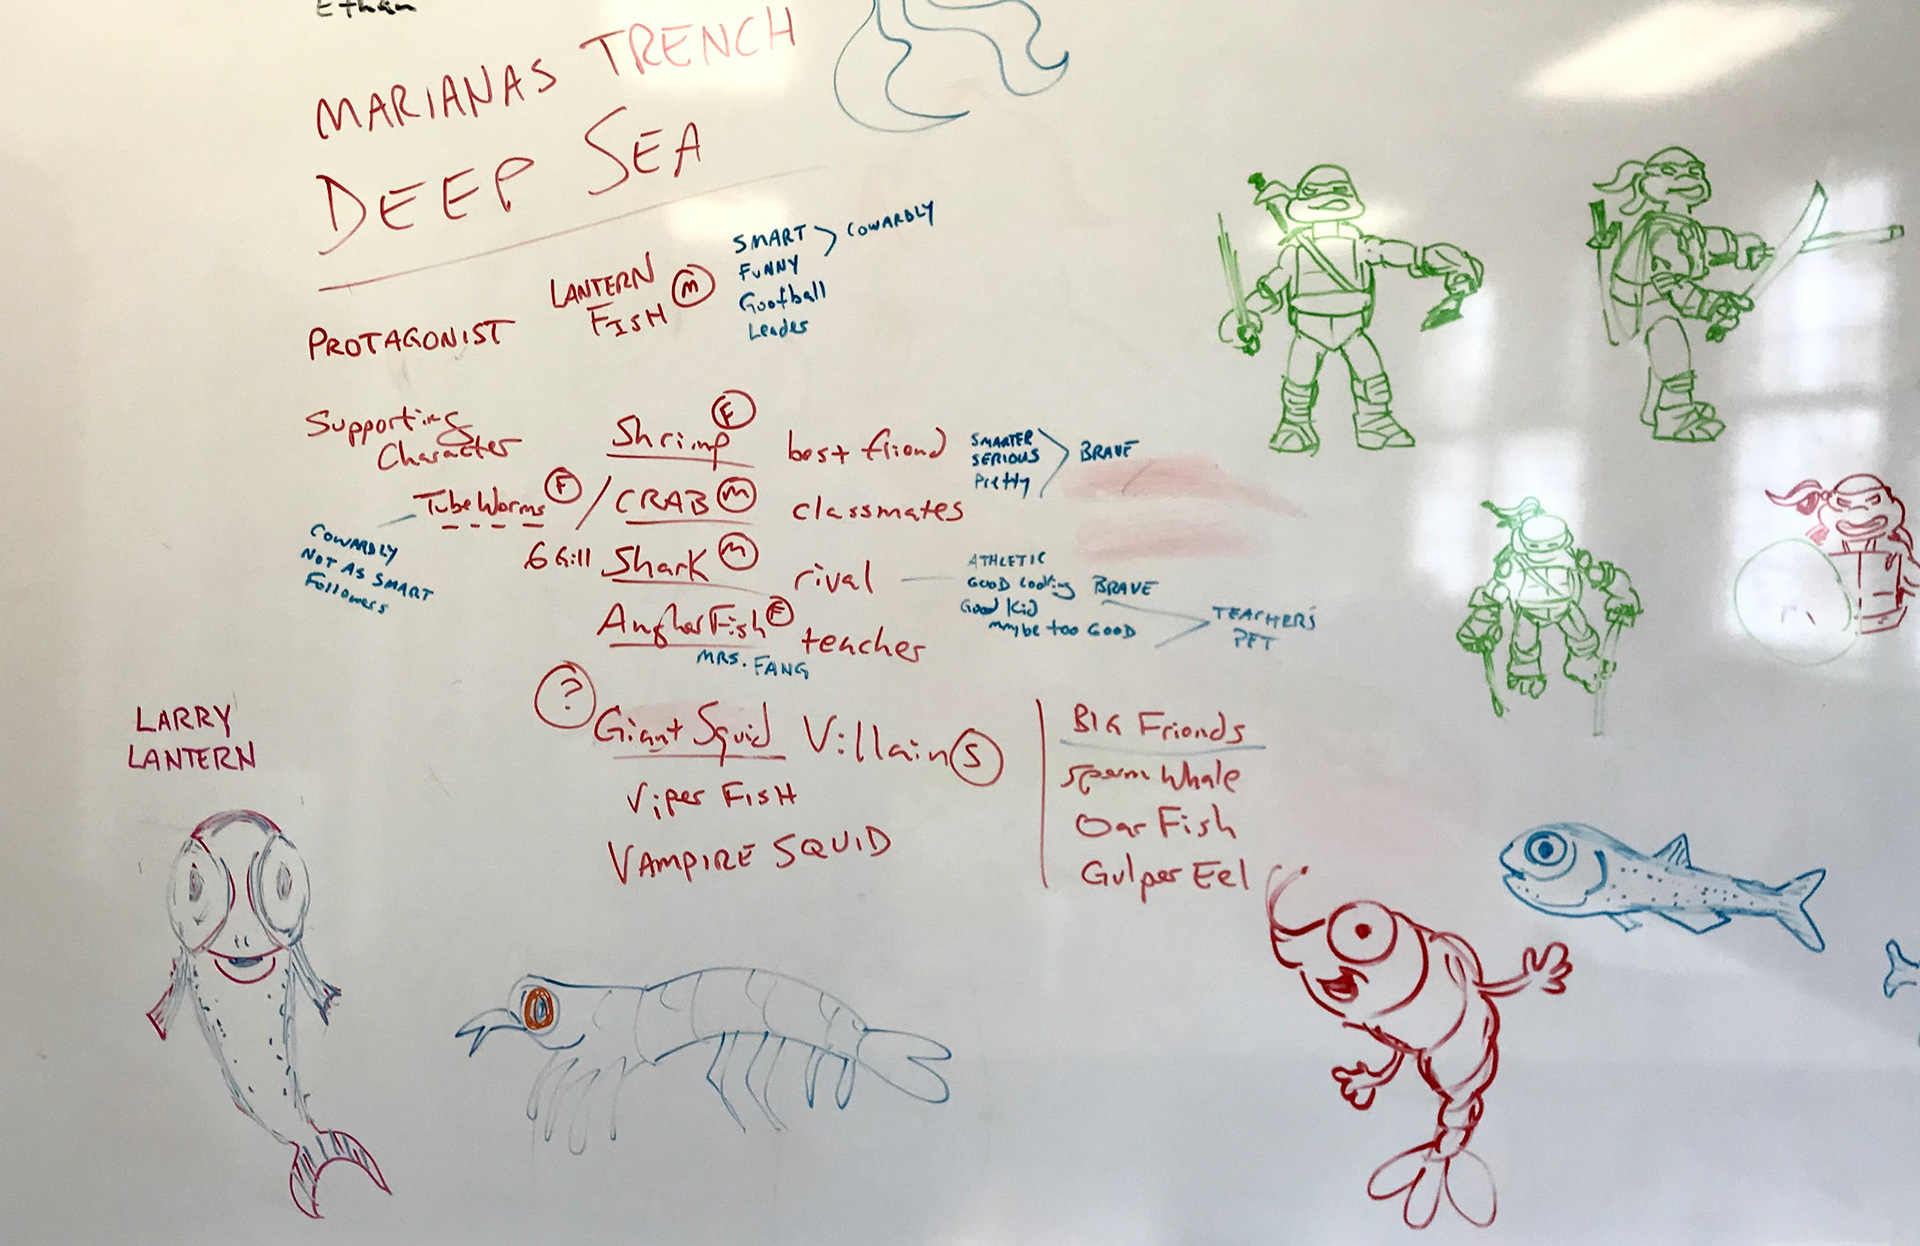 Ethan
MARIANAS TRENCH
DEEP SEA
PROTAGONIST LANTERN FISH (M)
SMART
FUNNY
Goofball
Leader
COWARDLY
Supporting Character
Shrimp (F) best friend
SMARTER
SERIOUS
Pretty
BRAVE
TubeWorms (F) / CRAB (M) classmates
COWARDLY
NOT AS SMART
Followers
6 Gill Shark (M) rival
ATHLETIC
GOOD Looking BRAVE
Good Kid
maybe too GOOD
TEACHER'S
PET
AnglerFish (F) teacher
MRS. FANG
(?) Giant Squid Villain(s)
Viper FISH
VAMPIRE SQUID
BIG Friends
Sperm Whale
Oar Fish
Gulper Eel
LARRY
LANTERN